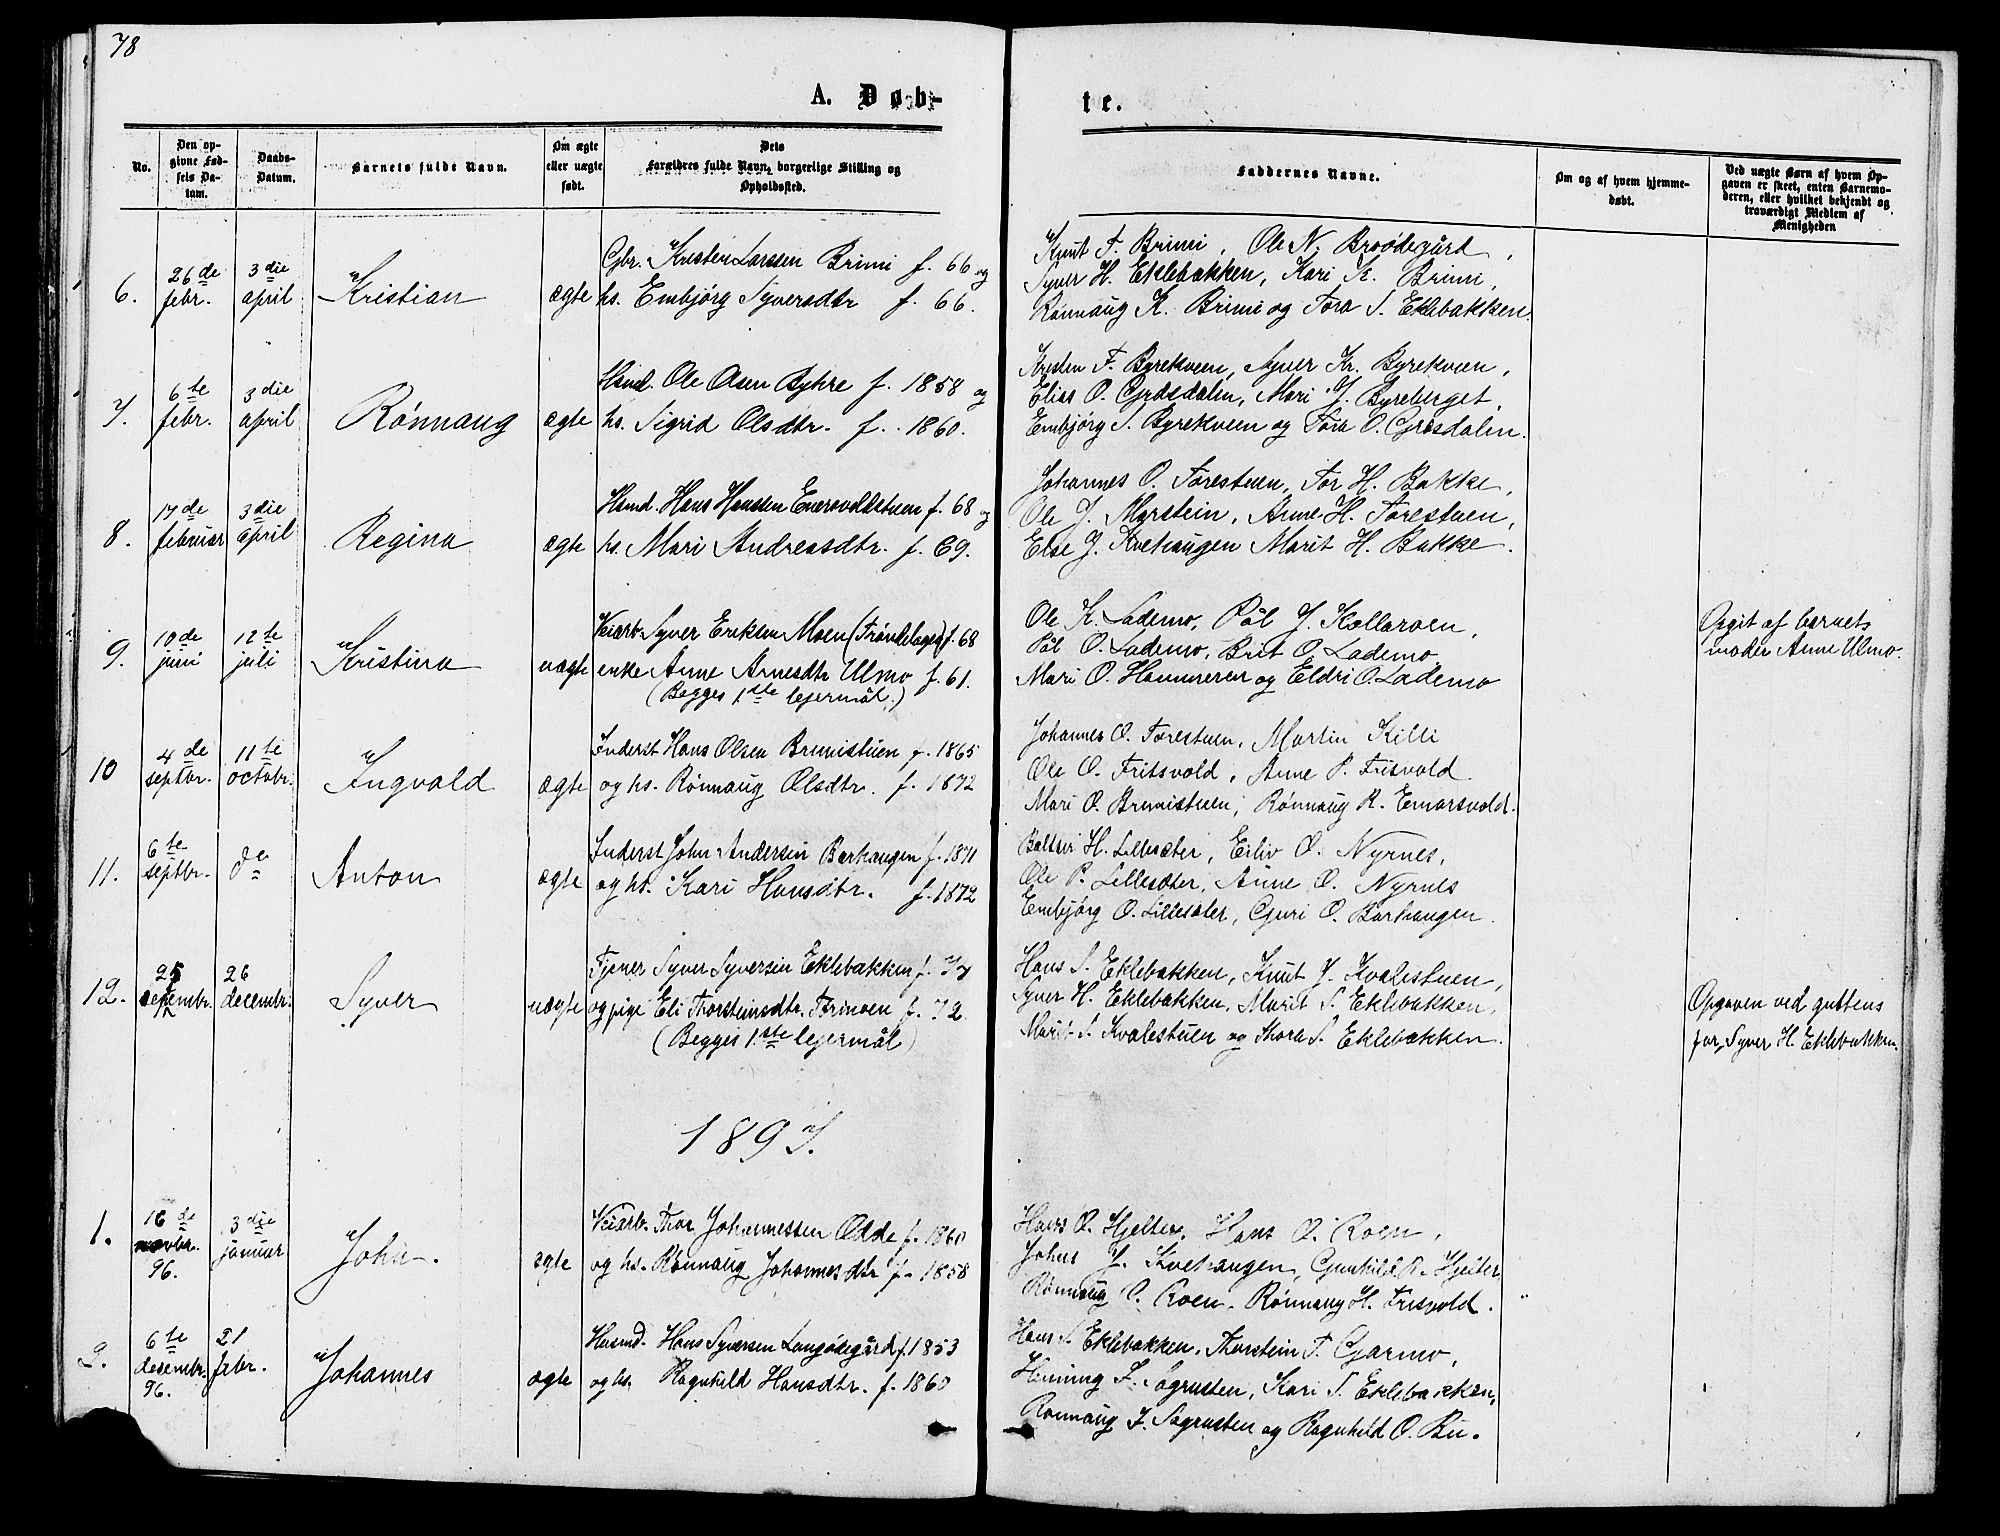 78
A. Døb-
te.
No.
Den op-
givne Fød-
sels Da-
tum.
Daabs-
Datum.
Barnets fulde Navn.
Om ægte
eller uægte
født.
Dets
Forældres fulde Navn, borgerlige Stilling og
Opholdssted.
Faddernes Navne.
Om og af hvem hjemme-
døbt.
Ved uægte Børn af hvem Op-
gaven er skeet, enten Barnemo-
deren, eller hvilket bekjendt og
troværdigt Medlem af
Menigheden
6.
26de
febr.
3die
april
Kristian
ægte
Gbr. Kristen Larssen Brimi f. 66 og
hs. Embjørg Syversdtr f. 66.
Knut T. Brimi, Ole N.
Syver H. Eklebakken, Kari K. Brimi,
Rønnaug K. Brimi og Tora S. Eklebakken.
7.
6te
febr.
3die
april
Rønnaug
ægte
Hsmd. Ole Olsen Byhre f. 1858 og
hs. Sigrid Olsdtr. f. 1860.
Kresten T. Byrekveen, Syver Kr. Byrekveen,
Elias O. Gjesdalen, Mari J. Byreberget,
Embjørg S. Byrekveen og Tora O. Gjesdalen.
8.
17de
februar
3die
april
Regina
ægte
Hsmd. Hans Hansen f. 68 og
hs. Mari Andreasdtr. f. 69.
Johannes O. Forestuen, Tor H. Bakke,
Ole J. Marstein, Anne H. Forestuen,
Else J. Kvehaugen Marit H. Bakke.
9.
10de
juni
12te
juli
Kristina
uægte
Veiarb. Syver Eriksen Moen (Trøndelagen) f. 68
enke Anne Arnesdtr Ulmo f. 61.
(Begges 1ste lejermål.)
Ole K. Lademo, Pål J. Kollaroen,
Pål O. Lademo, Brit O. Lademo
Mari O. Hammeren og Eldri O. Lademo
Opgit af barnets
moder Anne Ulmo.
10
4de
septbr.
11te
octobr.
Ingvald
ægte
Inderst Hans Olsen Brimistuen f. 1865
og hs. Rønnaug Olsdtr. f. 1872
Johannes O. Forestuen, Martin Killi
Ole O. Fritsvold, Anne P. Frisvold
Mari O. Brimistuen, Rønnaug R.
11.
6te
septbr.
do
Anton
ægte
Inderst John Andersen Barhaugen f. 1871
og hs. Kari Hansdtr. f. 1872
Baltser H. Lillesæter, Eiliv O. Nyrnes,
Ole P. Lillesæter, Anne O. Nyrnes
Embjørg O. Lillesæter, Guri O. Barhaugen.
12.
25
26
decembr.
Syver
uægte
Tjener Syver Syversen Eklebakken f. 77
og pige Eli Thorsteinsdtr. f. 72.
(Begges 1ste lejermål)
Hans S. Eklebakken, Knut J. Kvalestuen,
Syver H. Eklebakken, Marit S. Eklebakken,
Marit S. Kvalestuen og Thora S. Eklebakken.
Opgaven ved guttens
far, Syver H. Eklebakken.
1897.
1.
16de
novbr.
96.
3die
januar
John.
ægte
Veiarb. Thor Johannessen Odde f. 1860
og hs. Rønnaug Johannesdtr f. 1858
Hans O. Hjelter, Hans O. Roen,
Johns J. Kvehaugen, Gunhild R. Hjelter
Rønnaug O. Roen, Rønnaug H. Frisvold.
2.
6te
desembr.
96.
21
febr.
Johannes
ægte
Husmd. Hans Syversen f. 1853
og hs. Ragnhild Hansdtr. f. 1860
Hans S. Eklebakken, Thorstein T. Garmo,
Henning J. Sagrusten, Kari S. Eklebakken,
Rønnaug J. Sagrusten og Ragnhild O. Bu.